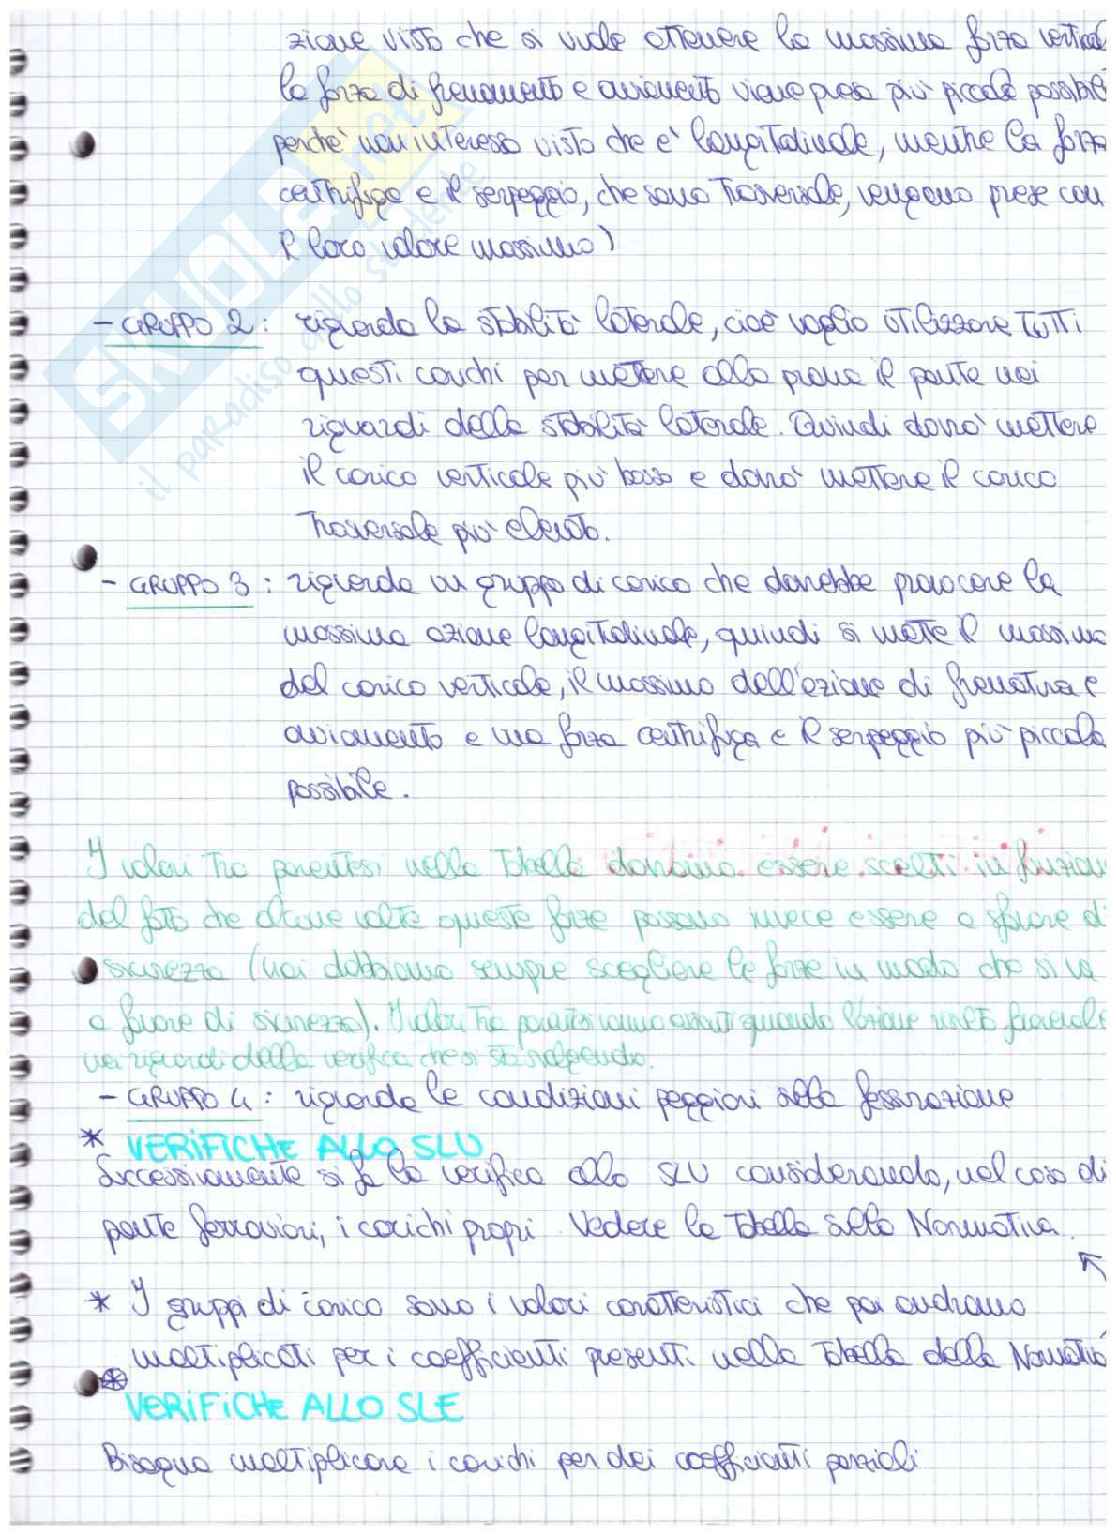 zione visto che si vuole ottenere la massima forza vertical
la forza di frenamento e avviamento viene presa più piccola possibile
perchè non interessa visto che è longitudinale, mentre la forza
centrifuga e il serpeggio, che sono trasversale, vengono prese con
il loro valore massimo)
- GRUPPO 2: riguarda la stabilità laterale, cioè voglio utilizzare TUTTI
questi carichi per mettere alla prova il ponte nei
riguardi della stabilità laterale. Quindi dovrò mettere
il carico verticale più basso e dovrò mettere il carico
trasversale più elevato.
- GRUPPO 3: riguarda un gruppo di carico che dovrebbe provocare la
massima azione longitudinale, quindi si mette il massimo
del carico verticale, il massimo dell'azione di frenatura e
avviamento e una forza centrifuga e il serpeggio più piccola
possibile.
I valori tra parentesi nella tabella dovranno essere scelti in funzion
del fatto che alcune volte queste forze possono invece essere a sfavore di
sicurezza (noi dobbiamo sempre scegliere le forze in modo che si va
a favore di sicurezza). I valori tra parentesi vanno assunti quando l'azione risulta favorevole
nei riguardi della verifica che si sta svolgendo.
- GRUPPO 4: riguarda le condizioni peggiori sulla fessurazione
* VERIFICHE ALLO SLU
Successivamente si fa la verifica allo SLU considerando, nel caso di
ponte ferroviari, i carichi propri. Vedere la tabella sulla Normativa.
* I gruppi di carico sono i valori caratteristici che poi andranno
moltiplicati per i coefficienti presenti nella tabella della Normativa
VERIFICHE ALLO SLE
Bisogna moltiplicare i carichi per dei coefficienti parziali
SKUOLA.net
il paradiso dello studente